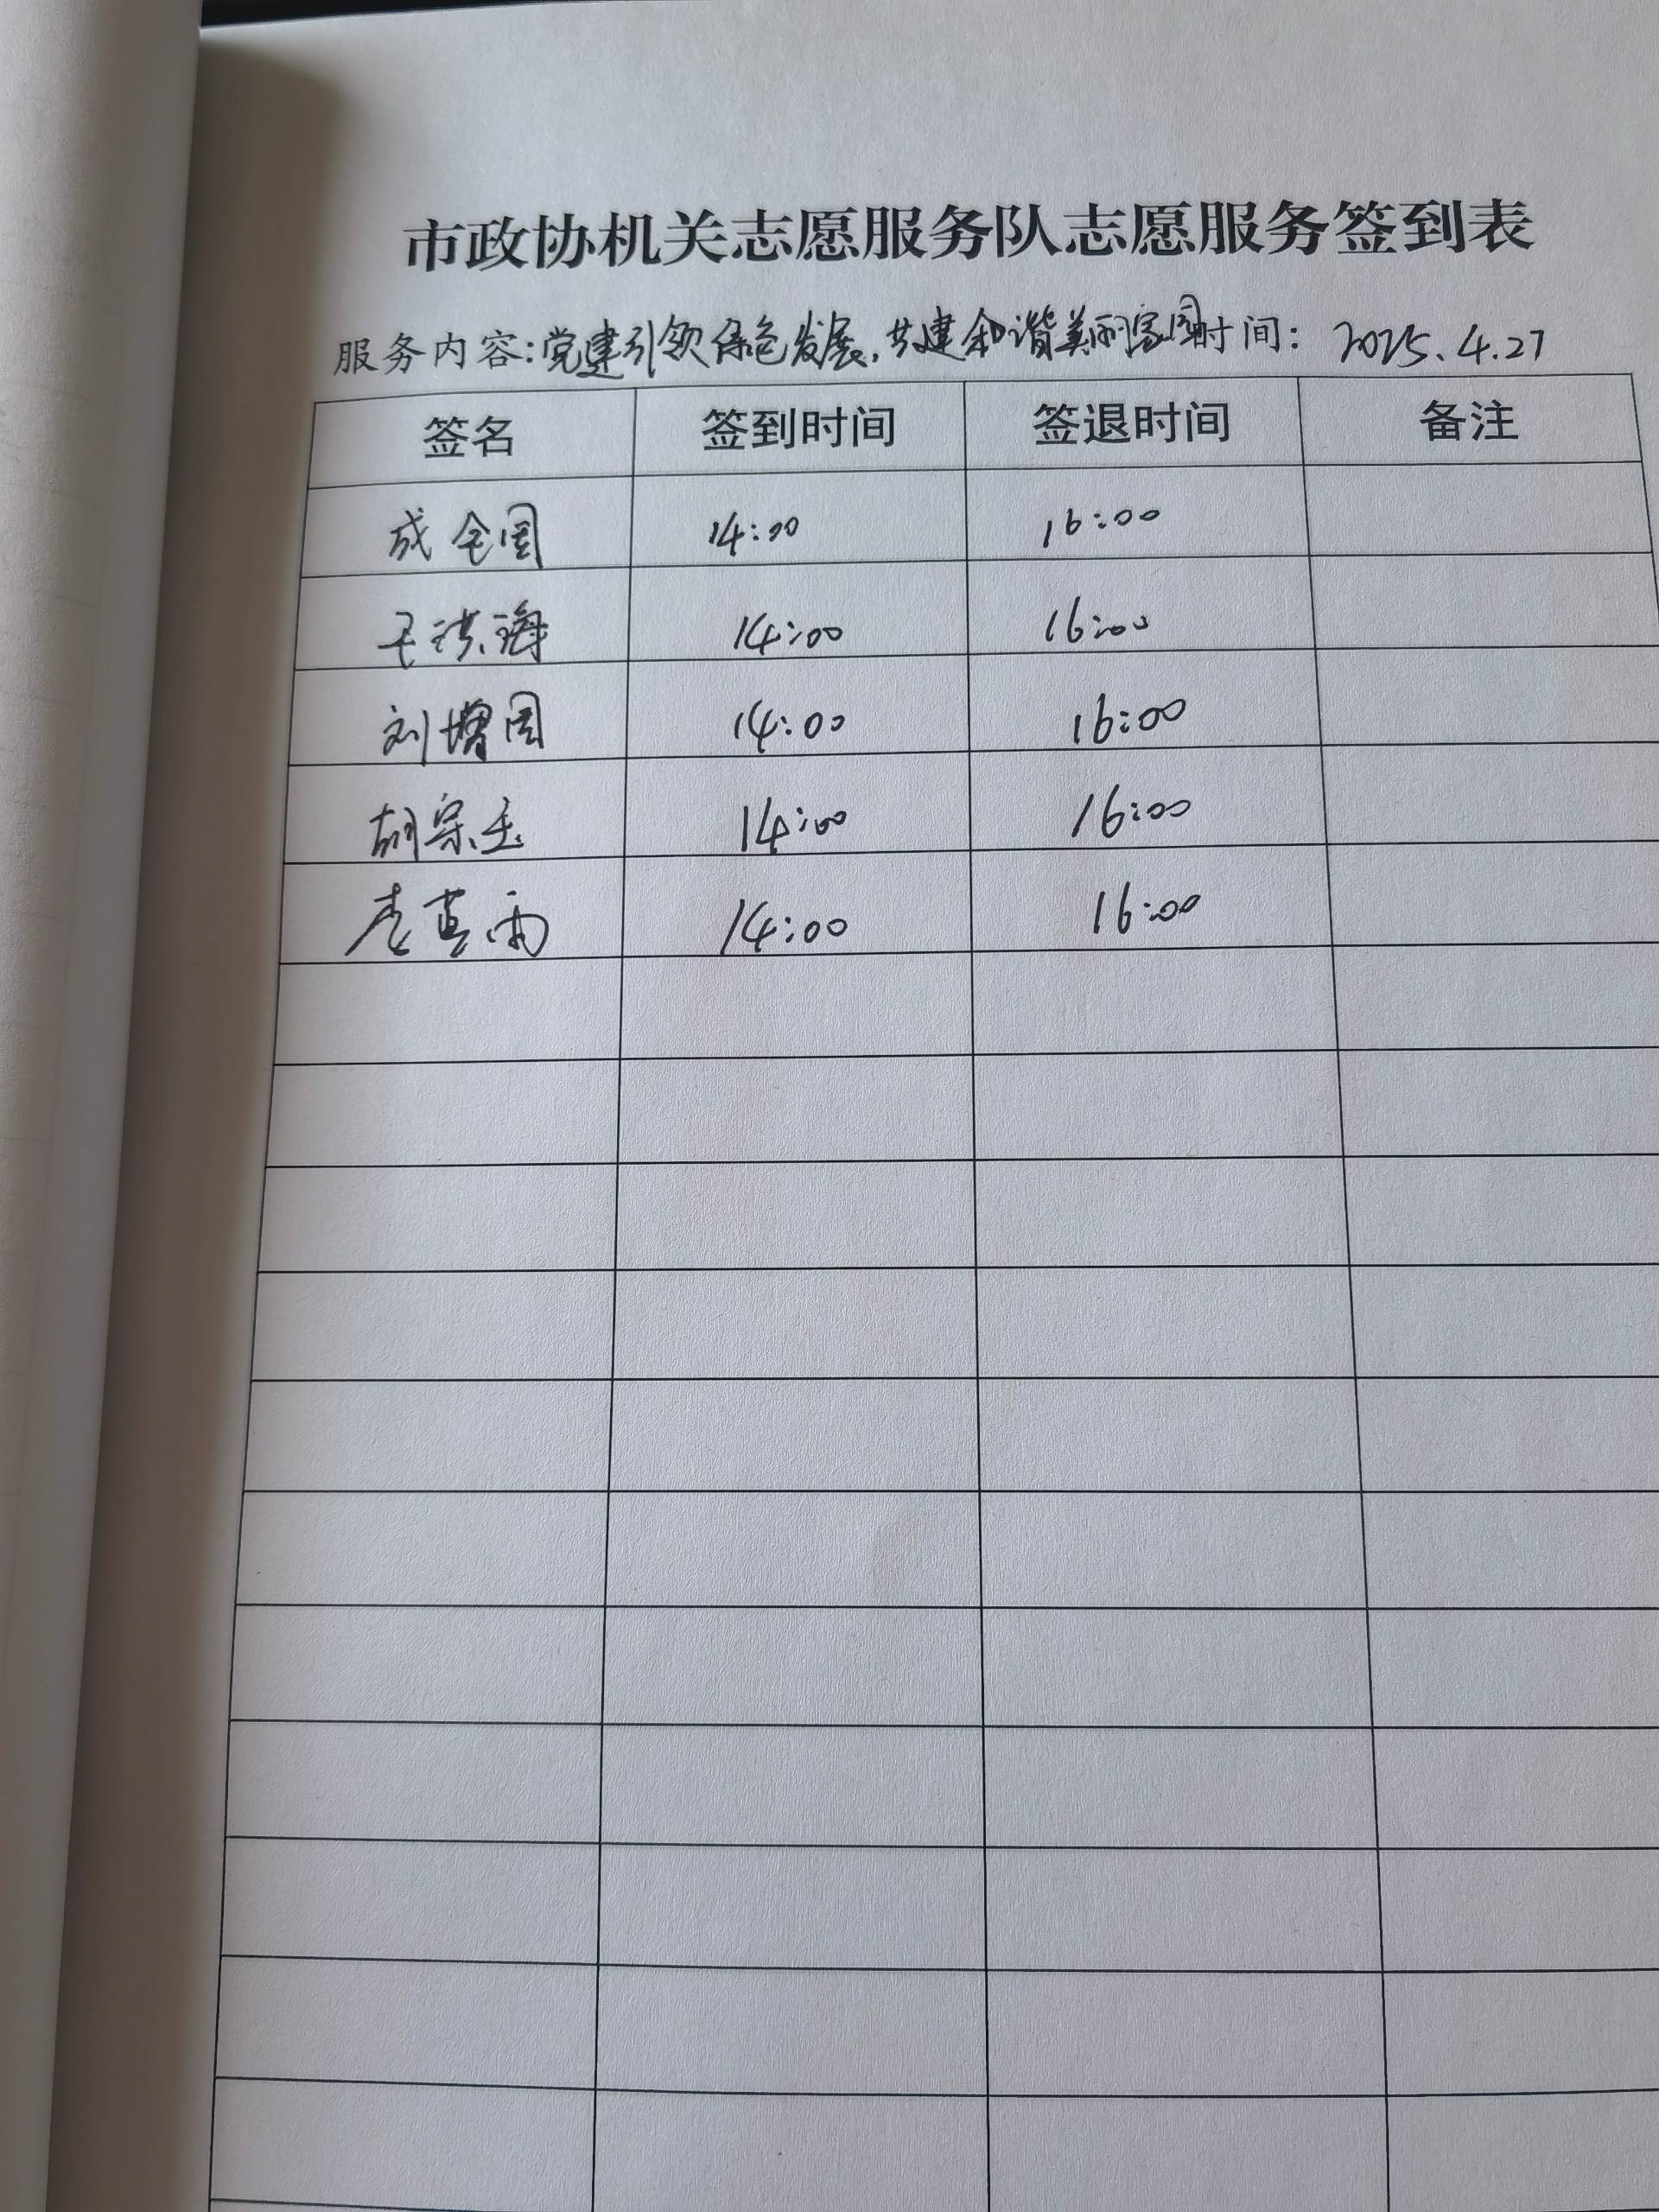 市政协机关志愿服务队志愿服务签到表
服务内容:党建引领绿色发展,共建和谐美丽家园时间: 2025.4.27
签名 签到时间 签退时间 备注
成全国 14:00 16:00
王洪海 14:00 16:00
刘增国 14:00 16:00
胡宗玉 14:00 16:00
14:00 16:00